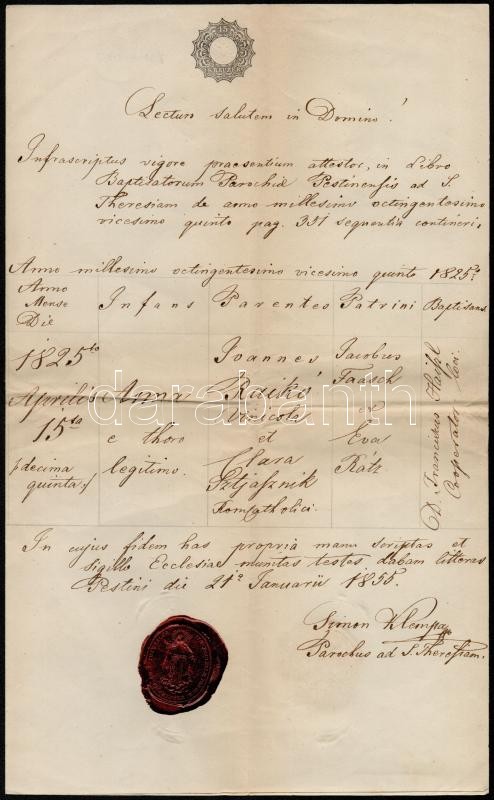 Lecturo salutem in Domino!
Infrascriptus vigore praesentium attestor, in Libro
Baptisatorum Parochiae Pestinensis ad S.
Theresiam de anno millesimo octingentesimo
vicesimo quinto pag. 351 sequentia contineri,
Anno millesimo octingentesimo vicesimo quinto 1825.
Anno
Mense
Die
Infans
Parentes
Patrini
Baptisans
1825to
Aprilis
15ta
decima
quinta
Anna
e thoro
legitimo.
Joannes
Raikó
vinicola
et
Clara
Rom Catholici
Jacobus
Taasch
et
Eva
Rátz
D. Franciscus
Cooperator loci.
darabanth
In cujus fidem has propria manu scriptas et
sigillo Ecclesiae munitas testes dabam litteras
Pestini die 21a Januarii 1855.
Simon Klempa
Parochus ad S. Theresiam.